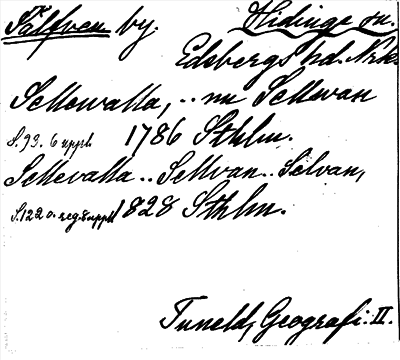 Fällfven by. Hidinge sn.
Edsbergs hd. Nrke
Sellewalla, .. nu Sellwan
S. 93. 6 uppl. 1786 Sthlm.
Sellevalla .. Sellvan .. Selvan,
S. 122 o. reg. 8 uppl. 1828 Sthlm.
Tuneld, Geografi. II.